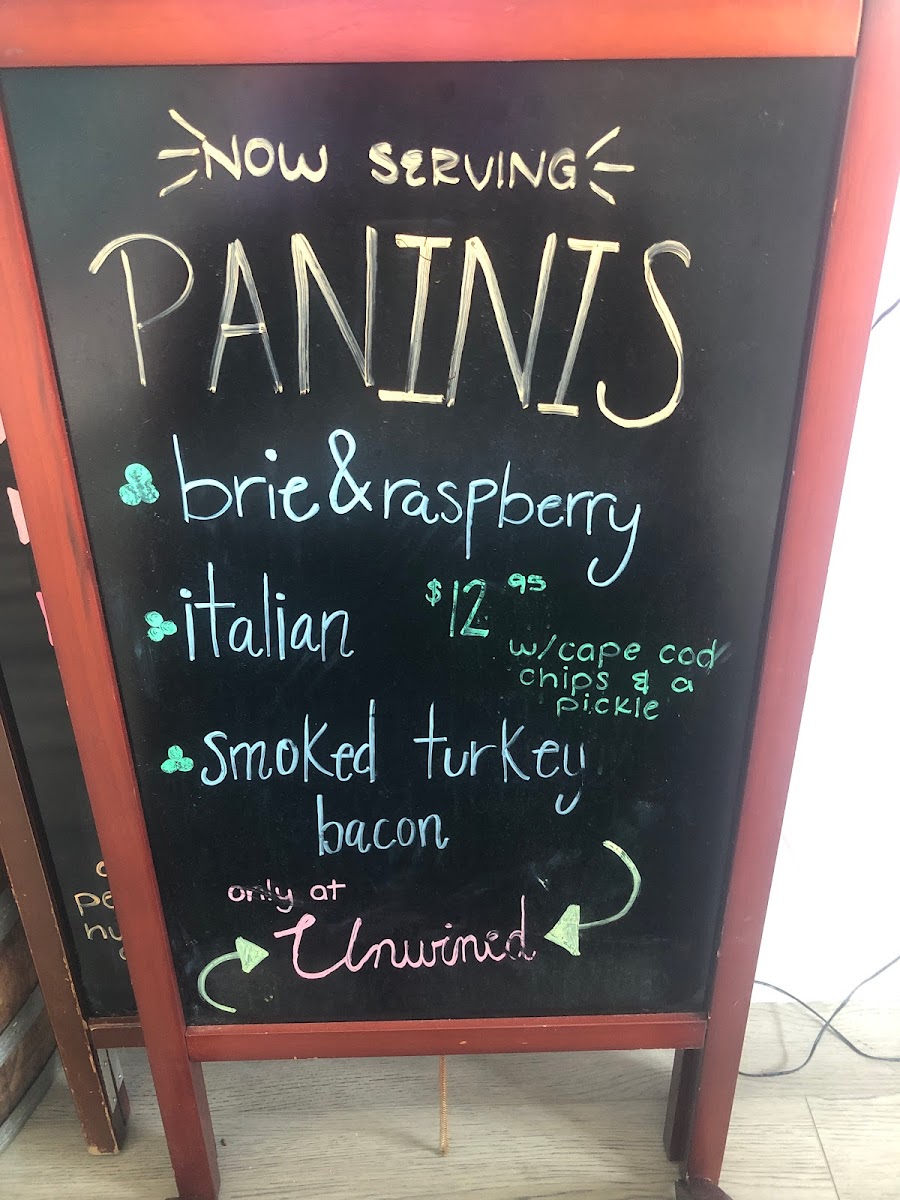 NOW SERVING
PANINIS
brie & raspberry
italian
$12 95
w/cape cod
chips & a
pickle
smoked turkey
bacon
only at
Unwined